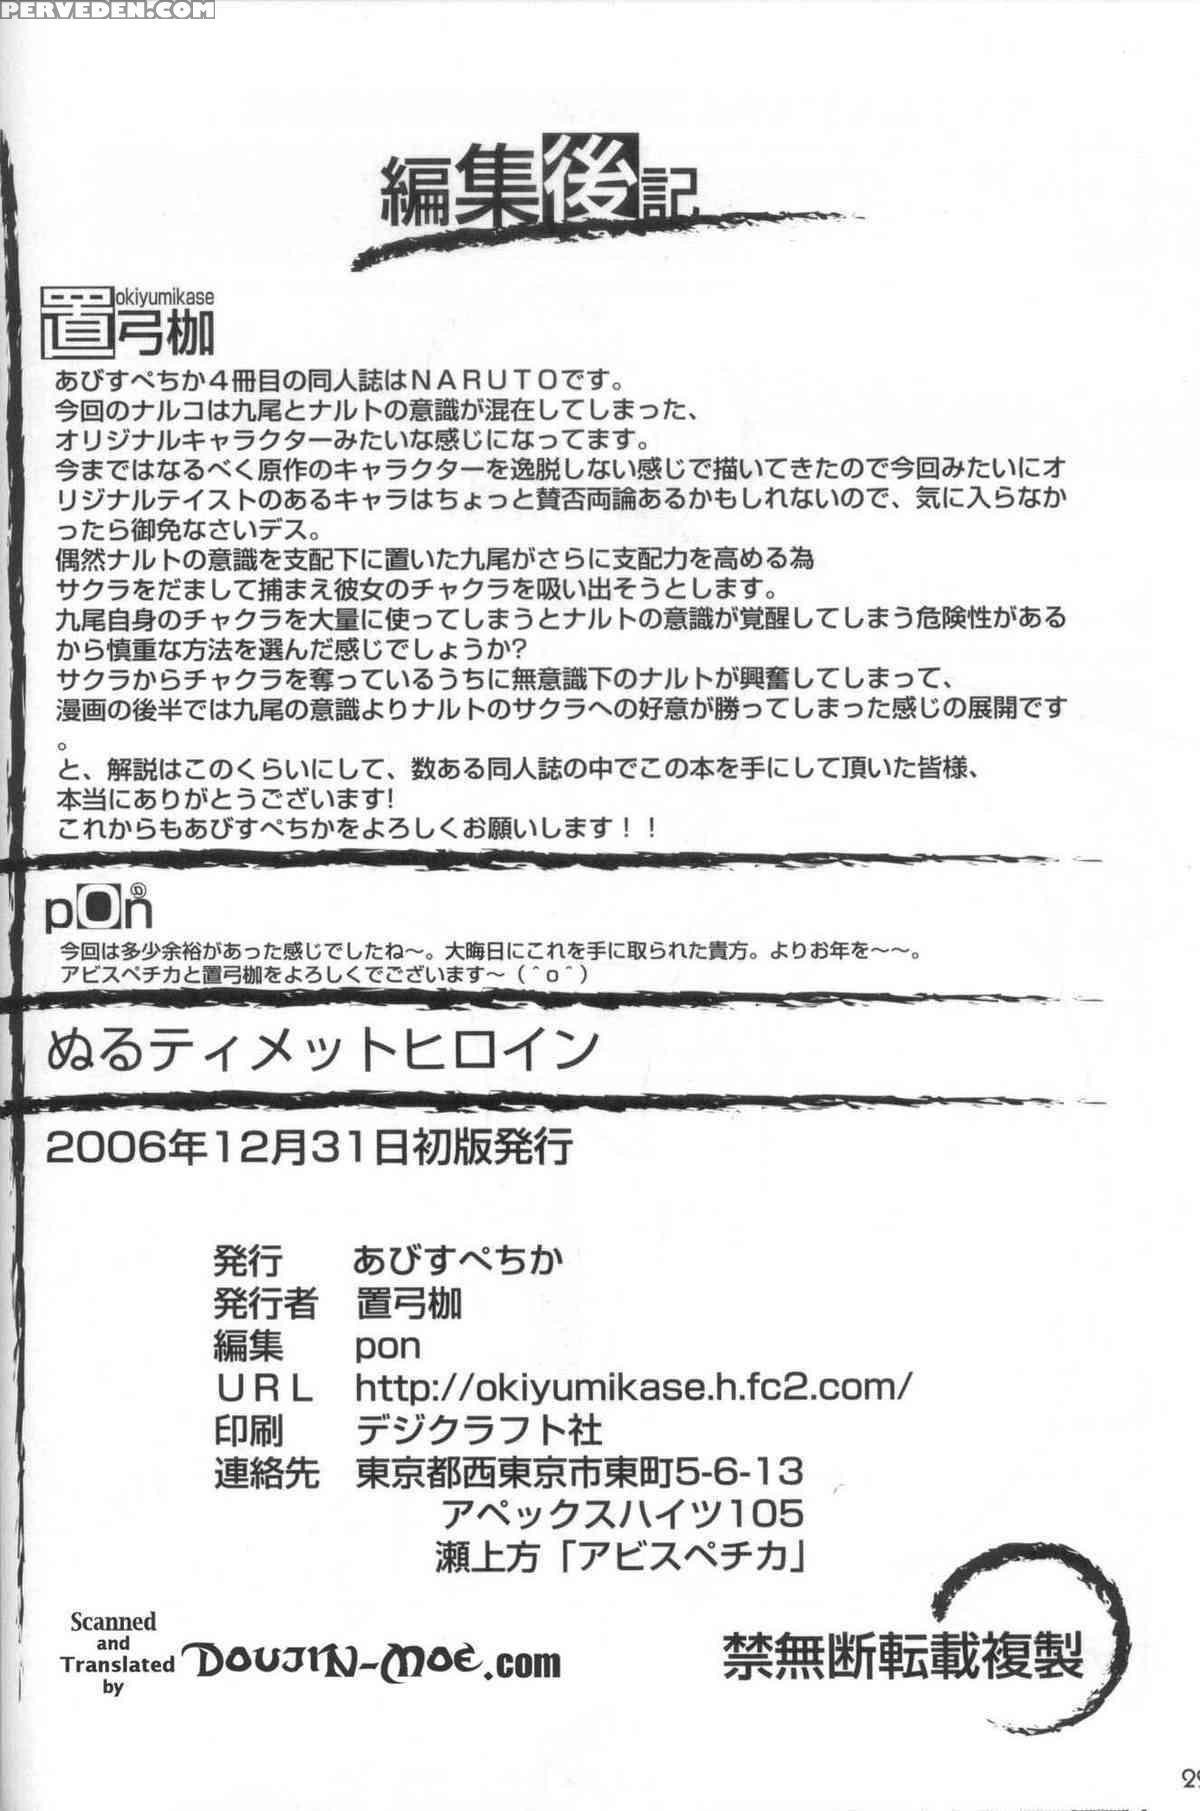 PERVEDEN.COM
編集後記
okiyumikase
置弓枷
あびすぺちか4冊目の同人誌はNARUTOです。
今回のナルコは九尾とナルトの意識が混在してしまった、
オリジナルキャラクターみたいな感じになってます。
今まではなるべく原作のキャラクターを逸脱しない感じで描いてきたので今回みたいにオ
リジナルテイストのあるキャラはちょっと賛否両論あるかもしれないので、気に入らなか
ったら御免なさいデス。
偶然ナルトの意識を支配下に置いた九尾がさらに支配力を高める為
サクラをだまして捕まえ彼女のチャクラを吸い出そうとします。
九尾自身のチャクラを大量に使ってしまうとナルトの意識が覚醒してしまう危険性がある
から慎重な方法を選んだ感じでしょうか?
サクラからチャクラを奪っているうちに無意識下のナルトが興奮してしまって、
漫画の後半では九尾の意識よりナルトのサクラへの好意が勝ってしまった感じの展開です
。
と、解説はこのくらいにして、数ある同人誌の中でこの本を手にして頂いた皆様、
本当にありがとうございます!
これからもあびすぺちかをよろしくお願いします！！
pon@
今回は多少余裕があった感じでしたね～。大晦日にこれを手に取られた貴方。よりお年を～～。
アビスペチカと置弓枷をよろしくでございます～（＾ｏ＾）
ぬるティメットヒロイン
2006年12月31日初版発行
発行 あびすぺちか
発行者 置弓枷
編集 pon
URL http://okiyumikase.h.fc2.com/
印刷 デジクラフト社
連絡先 東京都西東京市東町5-6-13
アペックスハイツ105
瀬上方「アビスペチカ」
Scanned
and
Translated
by
DOUJIN-MOE.com
禁無断転載複製
29